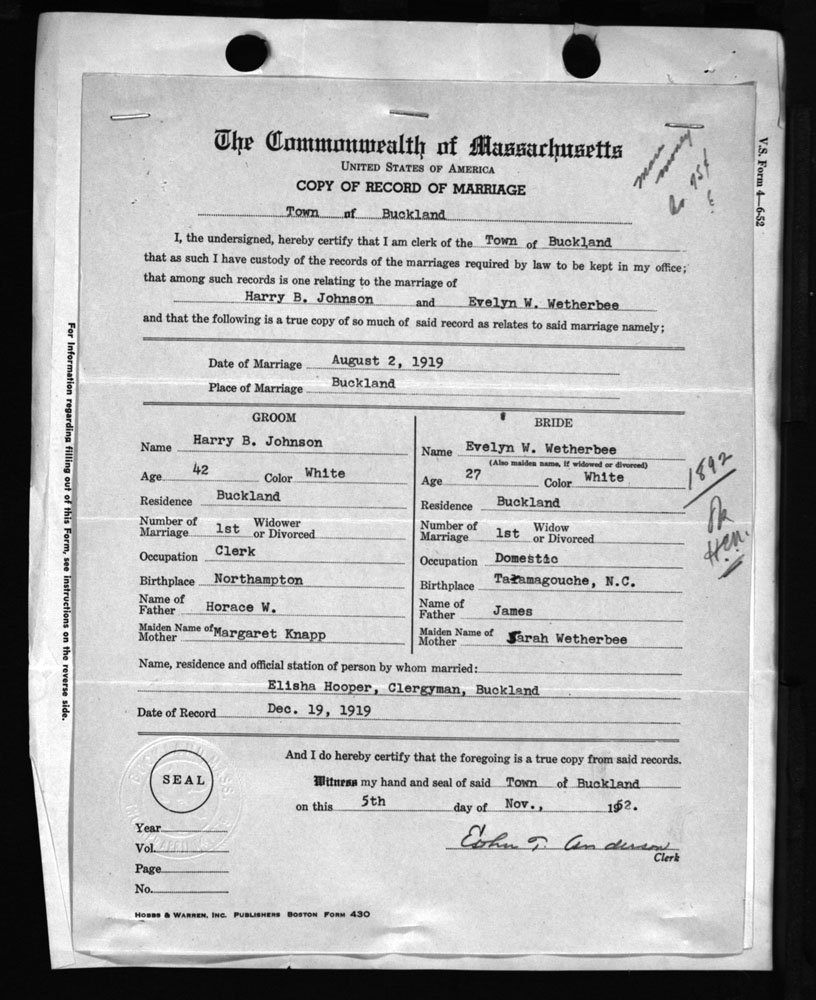 The Commonwealth of Massachusetts
UNITED STATES OF AMERICA
COPY OF RECORD OF MARRIAGE
more
money
95¢
V.S. Form 4—6-52
Town of Buckland
I, the undersigned, hereby certify that I am clerk of the Town of Buckland
that as such I have custody of the records of the marriages required by law to be kept in my office;
that among such records is one relating to the marriage of
Harry B. Johnson and Evelyn W. Wetherbee
and that the following is a true copy of so much of said record as relates to said marriage namely;
Date of Marriage August 2, 1919
Place of Marriage Buckland
GROOM
Name Harry B. Johnson
Age 42 Color White
Residence Buckland
Number of Marriage 1st Widower or Divorced
Occupation Clerk
Birthplace Northampton
Name of Father Horace W.
Maiden Name of Mother Margaret Knapp
BRIDE
Name Evelyn W. Wetherbee
(Also maiden name, if widowed or divorced)
Age 27 Color White
Residence Buckland
Number of Marriage 1st Widow or Divorced
Occupation Domestic
Birthplace Tatamagouche, N.C.
Name of Father James
Maiden Name of Mother Sarah Wetherbee
1892
Name, residence and official station of person by whom married:
Elisha Hooper, Clergyman, Buckland
Date of Record Dec. 19, 1919
And I do hereby certify that the foregoing is a true copy from said records.
SEAL
Witness my hand and seal of said Town of Buckland
on this 5th day of Nov., 1952.
Anderson
Clerk
Year
Vol.
Page
No.
HOBBS & WARREN, INC. PUBLISHERS BOSTON FORM 430
For information regarding filling out of this Form, see instructions on the reverse side.